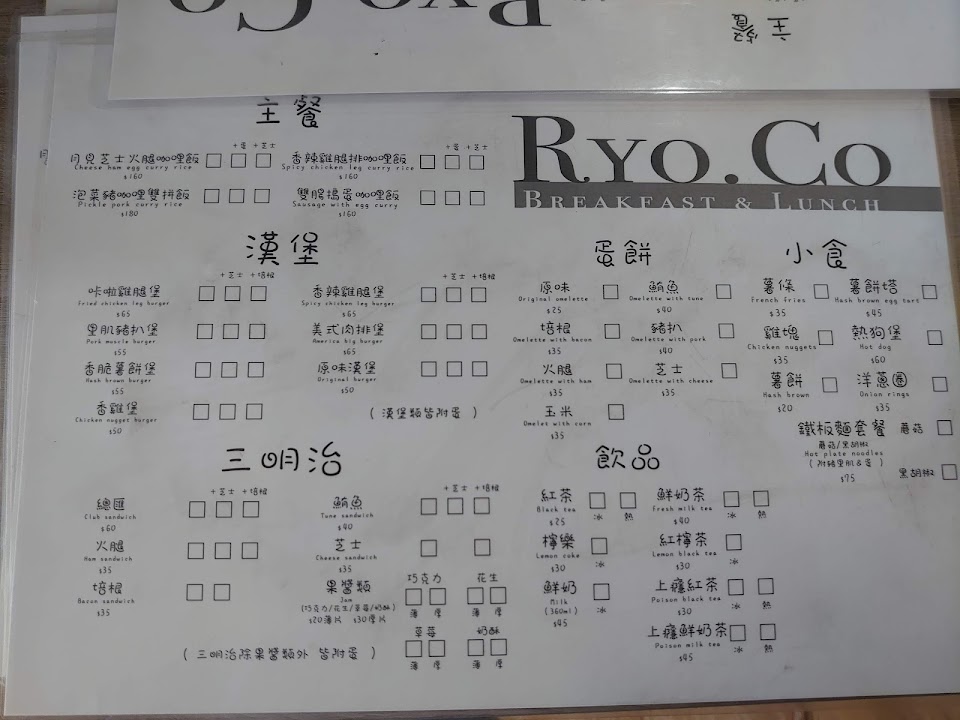 Ryo.Co
主餐
主餐
RYO.CO
BREAKFAST & LUNCH
+蛋 +芝士
月見芝士火腿咖哩飯
Cheese ham egg curry rice
$160
+蛋 +芝士
香辣雞腿排咖哩飯
Spicy chicken leg curry rice
$160
泡菜豬咖哩雙拼飯
Pickle pork curry rice
$180
雙腸搗蛋咖哩飯
Sausage with egg curry
$160
漢堡
+芝士 +培根
咔啦雞腿堡
Fried chicken leg burger
$65
+芝士 +培根
香辣雞腿堡
Spicy chicken leg burger
$65
里肌豬扒堡
Pork muscle burger
$55
美式肉排堡
America big burger
$65
香脆薯餅堡
Hash brown burger
$55
原味漢堡
Original burger
$50
香雞堡
Chicken nugget burger
$50
( 漢堡類皆附蛋 )
蛋餅
原味
Original omelette
$25
鮪魚
Omelette with tuna
$40
培根
Omelette with bacon
$35
豬扒
Omelette with pork
$40
火腿
Omelette with ham
$35
芝士
Omelette with cheese
$35
玉米
Omelet with corn
$35
小食
薯條
French fries
$35
薯餅塔
Hash brown egg tart
$45
雞塊
Chicken nuggets
$35
熱狗堡
Hot dog
$60
薯餅
Hash brown
$20
洋蔥圈
Onion rings
$35
鐵板麵套餐 蘑菇
蘑菇/黑胡椒
Hot plate noodles
( 附豬里肌&蛋 )
$75
黑胡椒
三明治
+芝士 +培根
總匯
Club sandwich
$60
+芝士 +培根
鮪魚
Tuna sandwich
$40
火腿
Ham sandwich
$35
芝士
Cheese sandwich
$35
培根
Bacon sandwich
$35
果醬類
Jam
(巧克力/花生/草莓/奶酥)
$20薄片 $30厚片
巧克力 花生
薄 厚 薄 厚
草莓 奶酥
薄 厚 薄 厚
( 三明治除果醬類外 皆附蛋 )
飲品
紅茶
Black tea
$25
冰 熱
鮮奶茶
Fresh milk tea
$40
冰 熱
檸樂
Lemon coke
$30
冰
紅檸茶
Lemon black tea
$30
冰
鮮奶
Milk
(360ml)
$45
冰
上癮紅茶
Poison black tea
$30
冰 熱
上癮鮮奶茶
Poison milk tea
$45
冰 熱